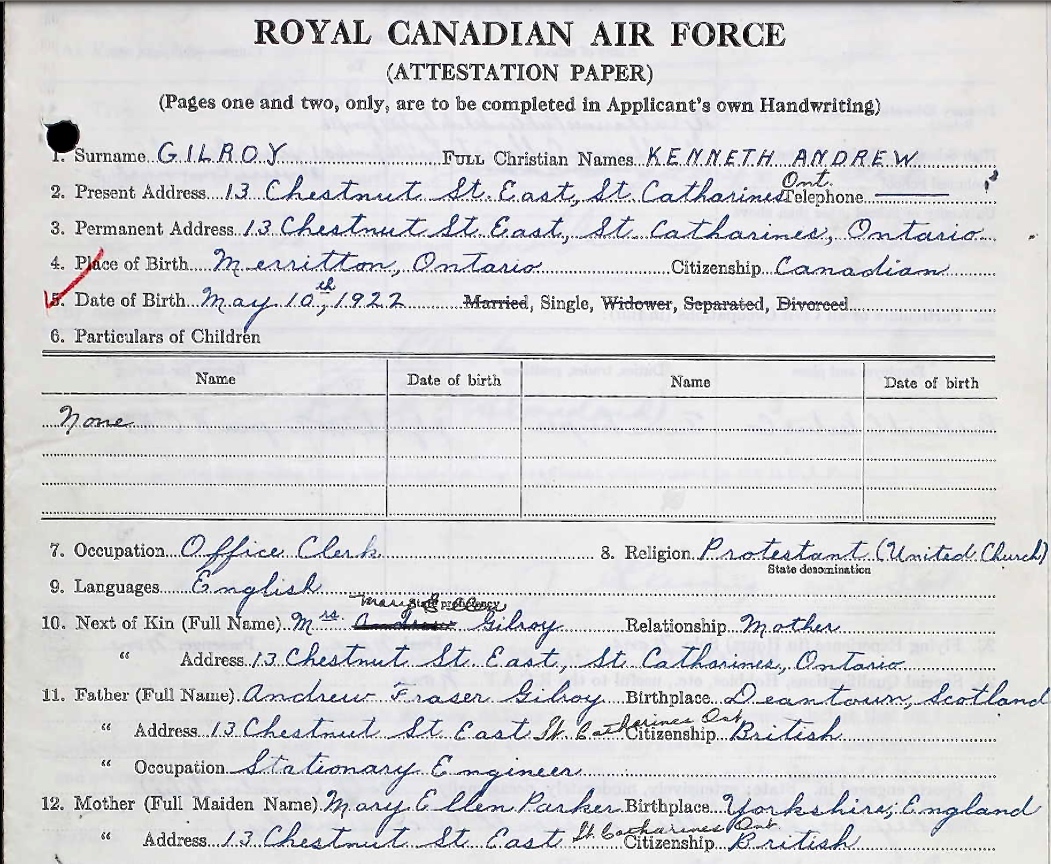 ROYAL CANADIAN AIR FORCE
(ATTESTATION PAPER)
(Pages one and two, only, are to be completed in Applicant's own Handwriting)
1. Surname GILROY FULL Christian Names KENNETH ANDREW
2. Present Address 13 Chestnut St. East, St. Catharines Ont. Telephone
3. Permanent Address 13 Chestnut St. East, St. Catharines, Ontario
4. Place of Birth Merritton, Ontario Citizenship Canadian
5. Date of Birth May 10th, 1922 Married, Single, Widower, Separated, Divorced
6. Particulars of Children
Name Date of birth Name Date of birth
None
7. Occupation Office Clerk 8. Religion Protestant (United Church)
State denomination
9. Languages English
Mary Ellen
10. Next of Kin (Full Name) Mrs Andrew Gilroy Relationship Mother
" Address 13 Chestnut St. East, St. Catharines, Ontario
11. Father (Full Name) Andrew Fraser Gilroy Birthplace Deantown, Scotland
" Address 13 Chestnut St. East St. Catharines Ont Citizenship British
" Occupation Stationary Engineer
12. Mother (Full Maiden Name) Mary Ellen Parker Birthplace Yorkshire, England
" Address 13 Chestnut St. East St. Catharines Ont. Citizenship British